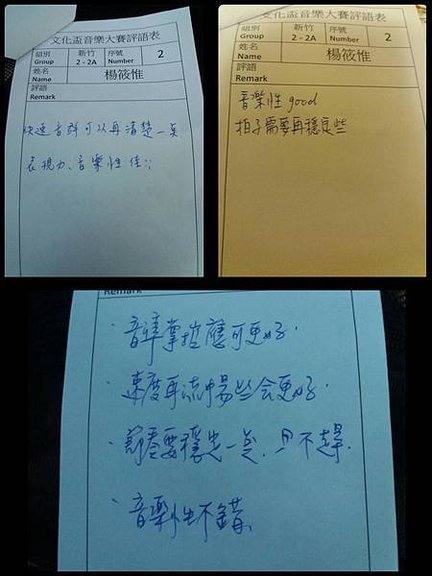 文化盃音樂大賽評語表
組別 新竹 序號 2
Group 2 - 2A Number
姓名 楊筱惟
Name
評語
Remark
快速音群可以再清楚一點
表現力、音樂性佳
文化盃音樂大賽評語表
組別 新竹 序號 2
Group 2 - 2A Number
姓名 楊筱惟
Name
評語
Remark
音樂性 good
拍子需要再穩定些
Remark
音準掌控應可更好.
速度再流暢些会更好.
節奏要穩定一点.只不趕.
音樂性不錯